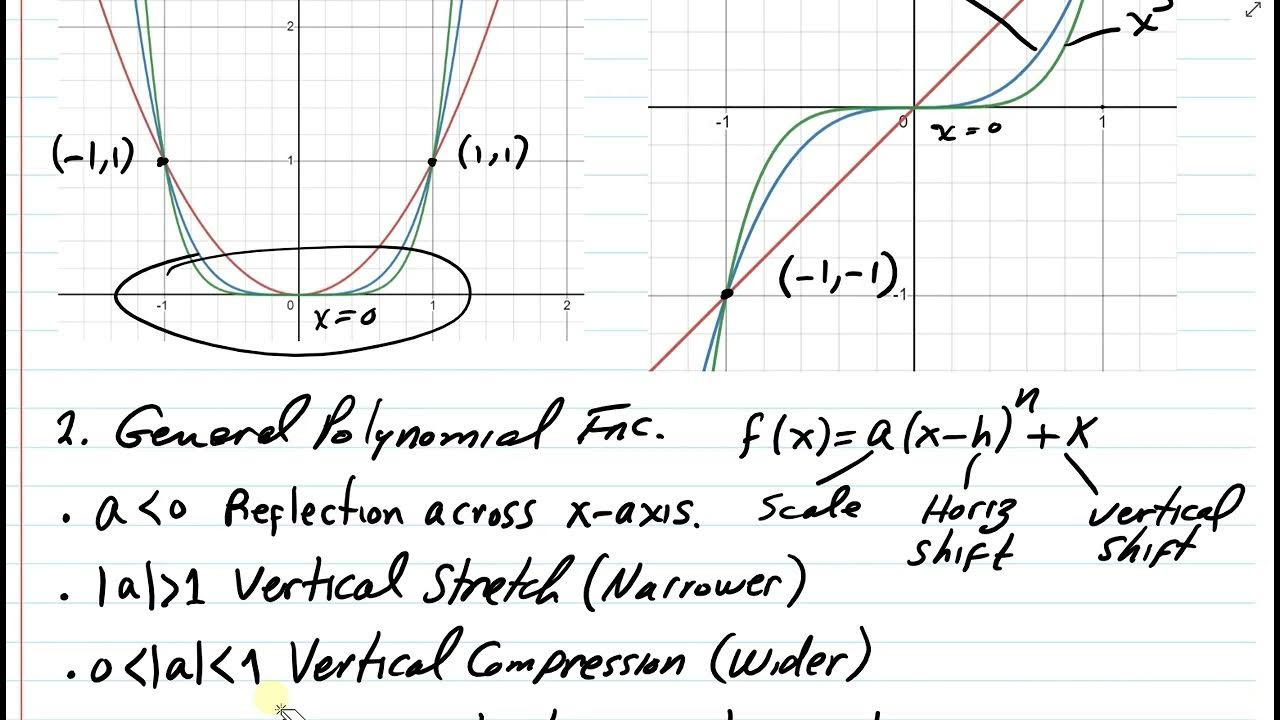 2
x⁵
(-1,1)
1
(1,1)
-1
0
1
2
x=0
-1
0
1
x=0
(-1,-1)
-1
2. General Polynomial Fnc. f(x)=a(x-h)ⁿ+K
• a<0 Reflection across x-axis. Scale Horiz shift vertical shift
• |a|>1 Vertical Stretch (Narrower)
• 0<|a|<1 Vertical Compression (Wider)